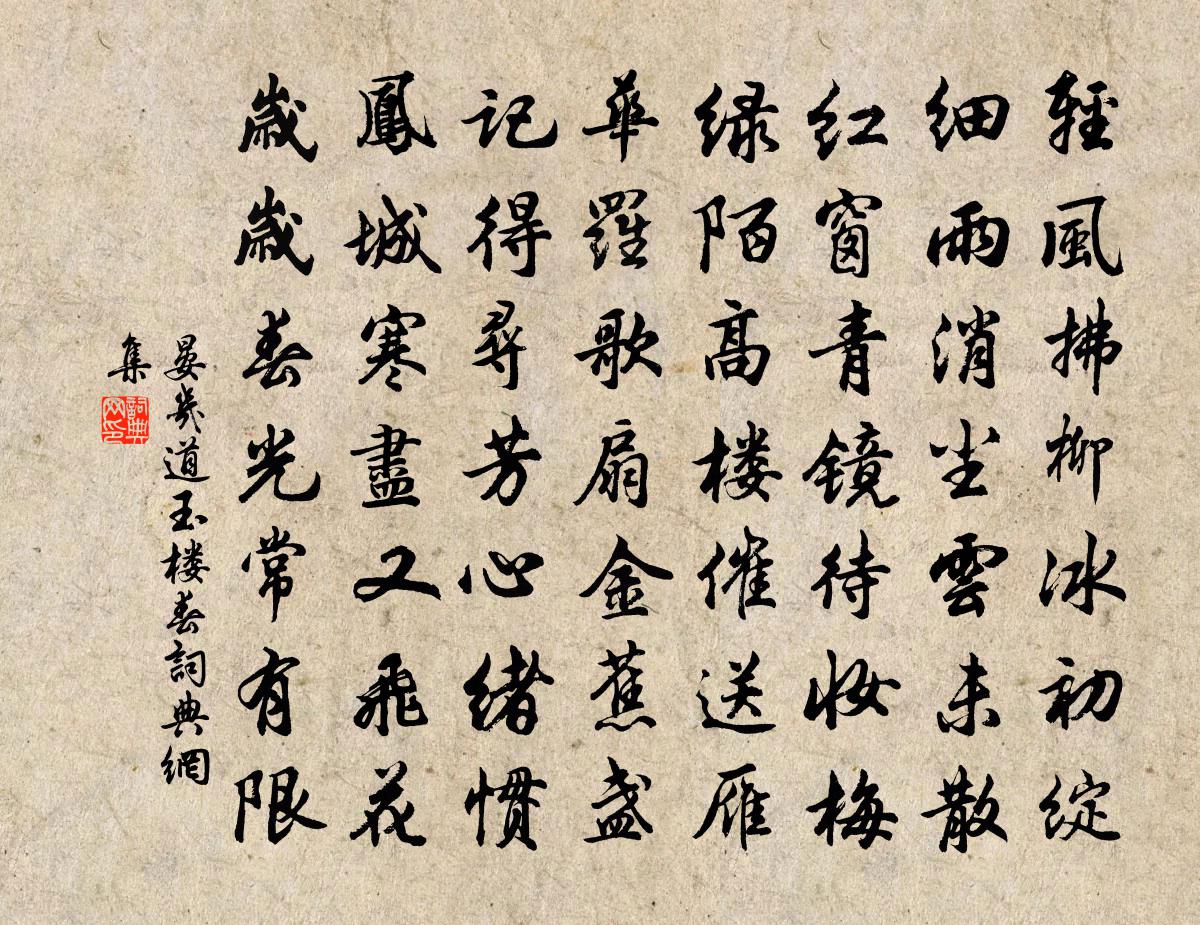 輕風拂柳冰初綻
細雨消尘雲未散
红窗青镜待妆梅
绿陌高楼催送雁
華羅歌扇金蕉盏
記得尋芳心緒慣
鳳城寒盡又飛花
歳歳春光常有限
晏幾道玉楼春詞典網
集
詞典网印